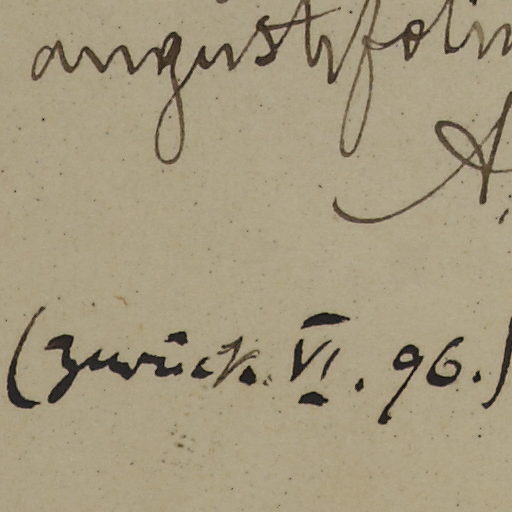 angustifoliu
A.
(zurück. VI. 96.)